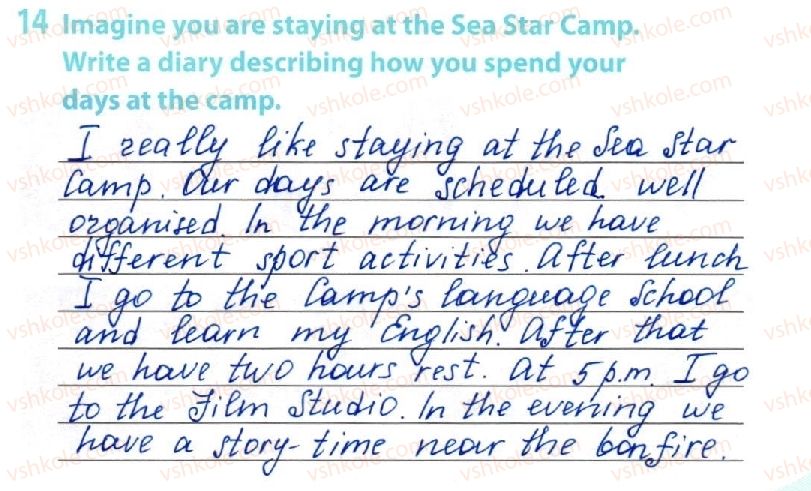 14 Imagine you are staying at the Sea Star Camp.
Write a diary describing how you spend your
days at the camp.
I really like staying at the Sea Star
Camp. Our days are scheduled well
organised. In the morning we have
different sport activities. After lunch
I go to the Camp's language School
and learn my English. After that
we have two hours rest. At 5 p.m. I go
to the Film Studio. In the evening we
have a story-time near the bonfire.